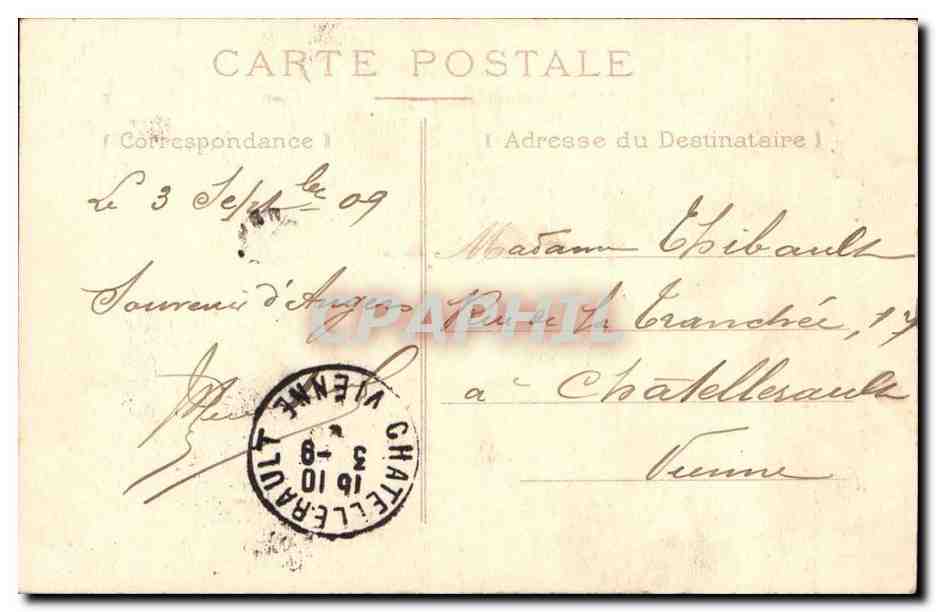 CARTE POSTALE
( Correspondance )
( Adresse du Destinataire )
Le 3 Septbre 09
Souvenir d'Angers
Madame Thibault
Rue de la Tranchée, 17
à Châtellerault
Vienne
CPAPHIL
CHATELLERAULT
VIENNE
3 -9
16 10